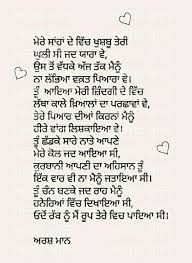 ਮੇਰੇ ਸਾਂਹਾਂ ਦੇ ਵਿੱਚ ਖੁਸ਼ਬੂ ਤੇਰੀ
ਘੁਲੀ ਸੀ ਜਦ ਯਾਰਾ ਵੇ,
ਉਸ ਤੋਂ ਵੱਧਕੇ ਅੱਜ ਤੱਕ ਮੈਨੂੰ
ਨਾ ਲੱਭਿਆ ਵਕਤ ਪਿਆਰਾ ਵੇ।
ਤੂੰ ਆਇਆ ਮੇਰੀ ਜ਼ਿੰਦਗੀ ਦੇ ਵਿੱਚ
ਲੱਥਾ ਕਾਲੇ ਖ਼ਿਆਲਾਂ ਦਾ ਪਰਛਾਵਾਂ ਵੇ,
ਤੇਰੇ ਪਿਆਰ ਦੀਆਂ ਕਿਰਨਾਂ ਮੈਨੂੰ
ਹੀਰੇ ਵਾਂਗ ਲਿਸ਼ਕਾਇਆ ਵੇ।
ਤੂੰ ਛੱਡਕੇ ਸਾਰੇ ਨਾਤੇ ਆਪਣੇ
ਮੇਰੇ ਕੋਲ ਜਦ ਆਇਆ ਸੀ,
ਕੁਰਬਾਨੀ ਆਪਣੀ ਦਾ ਅਹਿਸਾਨ ਤੂੰ
ਇੱਕ ਵਾਰ ਵੀ ਨਾ ਮੈਨੂੰ ਜਤਾਇਆ ਸੀ।
ਤੂੰ ਚੰਨ ਬਣਕੇ ਜਦ ਰਾਹ ਮੈਨੂੰ
ਹਨੇਰਿਆਂ ਵਿੱਚ ਦਿਖਾਇਆ ਸੀ,
ਓਦੋਂ ਰੱਬ ਨੂੰ ਮੈਂ ਰੂਪ ਤੇਰੇ ਵਿਚ ਪਾਇਆ ਸੀ।
ਅਰਸ਼ ਮਾਨ